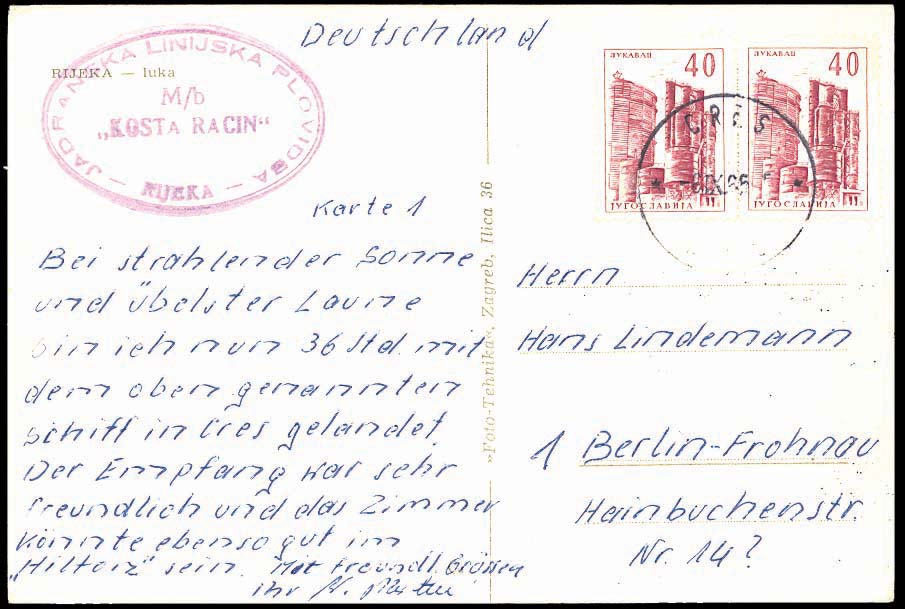 Deutschland
RIJEKA — luka
JADRANSKA LINIJSKA PLOVIDBA
M/b
„KOSTA RACIN“
— RIJEKA —
ЛУКАВАЦ 40
ЈУГОСЛАВИЈА
ЛУКАВАЦ 40
ЈУГОСЛАВИЈА
CRES
Karte 1
Bei strahlender Sonne
und übelster Laune
bin ich nun 36 Std. mit
dem oben genannten
Schiff in Cres gelandet.
Der Empfang war sehr
freundlich und das Zimmer
könnte ebenso gut im
„Hilton“ sein. Mit freundl. Grüssen
Ihr
»Foto-Tehnika«, Zagreb, Ilica 36
Herrn
Hans Lindemann
1 Berlin-Frohnau
Hainbuchenstr.
Nr. 14?